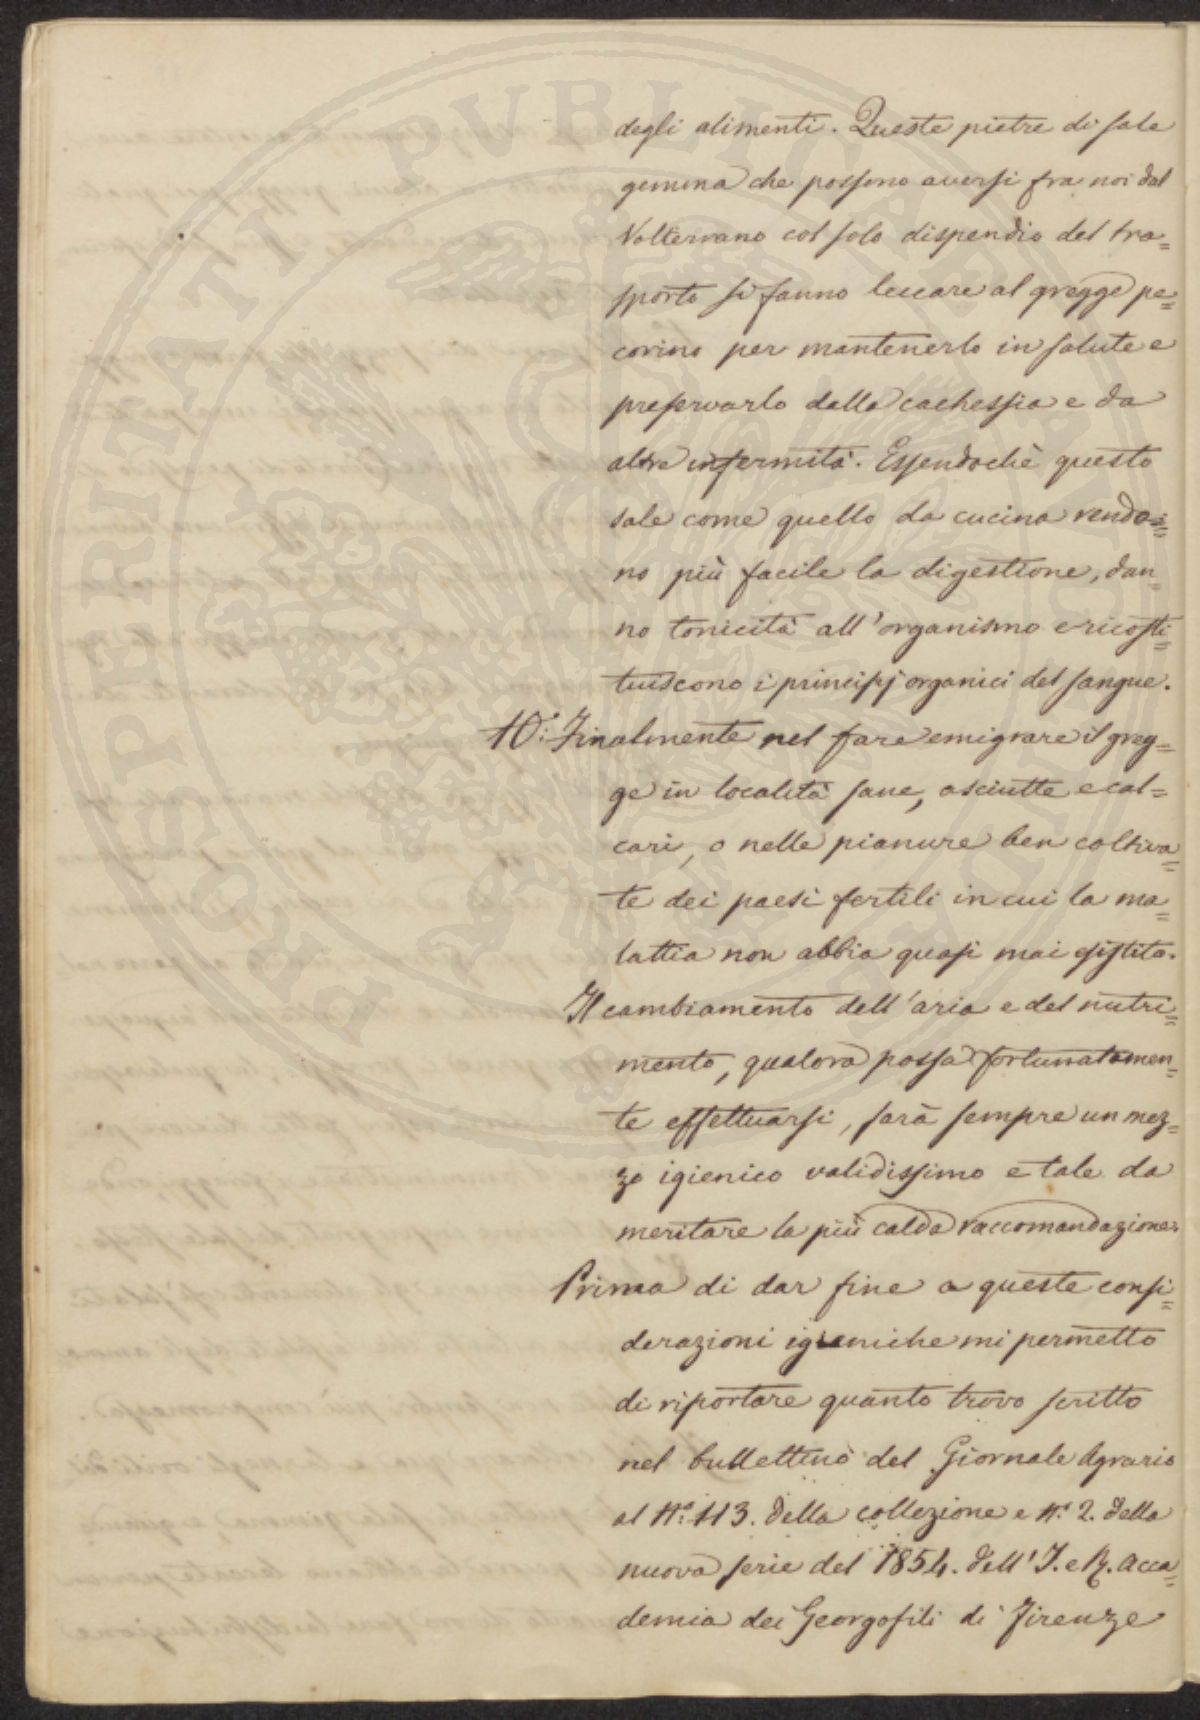 degli alimenti. Queste pietre di sale
gemma che possono aversi fra noi dal
Volterrano col solo dispendio del tra=
sporto si fanno leccare al gregge pe=
corino per mantenerlo in salute e
preservarlo dalla cachessia e da
altre infermità. Essendochè questo
sale come quello da cucina rendo=
no più facile la digestione, dan=
no tonicità all'organismo e ricosti=
tuiscono i principj organici del sangue.
10.° Finalmente nel fare emigrare il greg=
ge in località sane, asciutte e cal=
cari, o nelle pianure ben coltiva=
te dei paesi fertili in cui la ma=
lattia non abbia quasi mai esistito.
Il cambiamento dell'aria e del nutri=
mento, qualora possa fortunatamen=
te effettuarsi, sarà sempre un mez=
zo igienico validissimo e tale da
meritare la più calda raccomandazione.
Prima di dar fine a queste consi=
derazioni igieniche mi permetto
di riportare quanto trovo scritto
nel bullettino del Giornale Agrario
al N.° 113. della collezione e N.° 2. della
nuova serie del 1854. dell'I. e R. Acca=
demia dei Georgofili di Firenze
PROSPERITATI PVBLICAE AVGENDAE